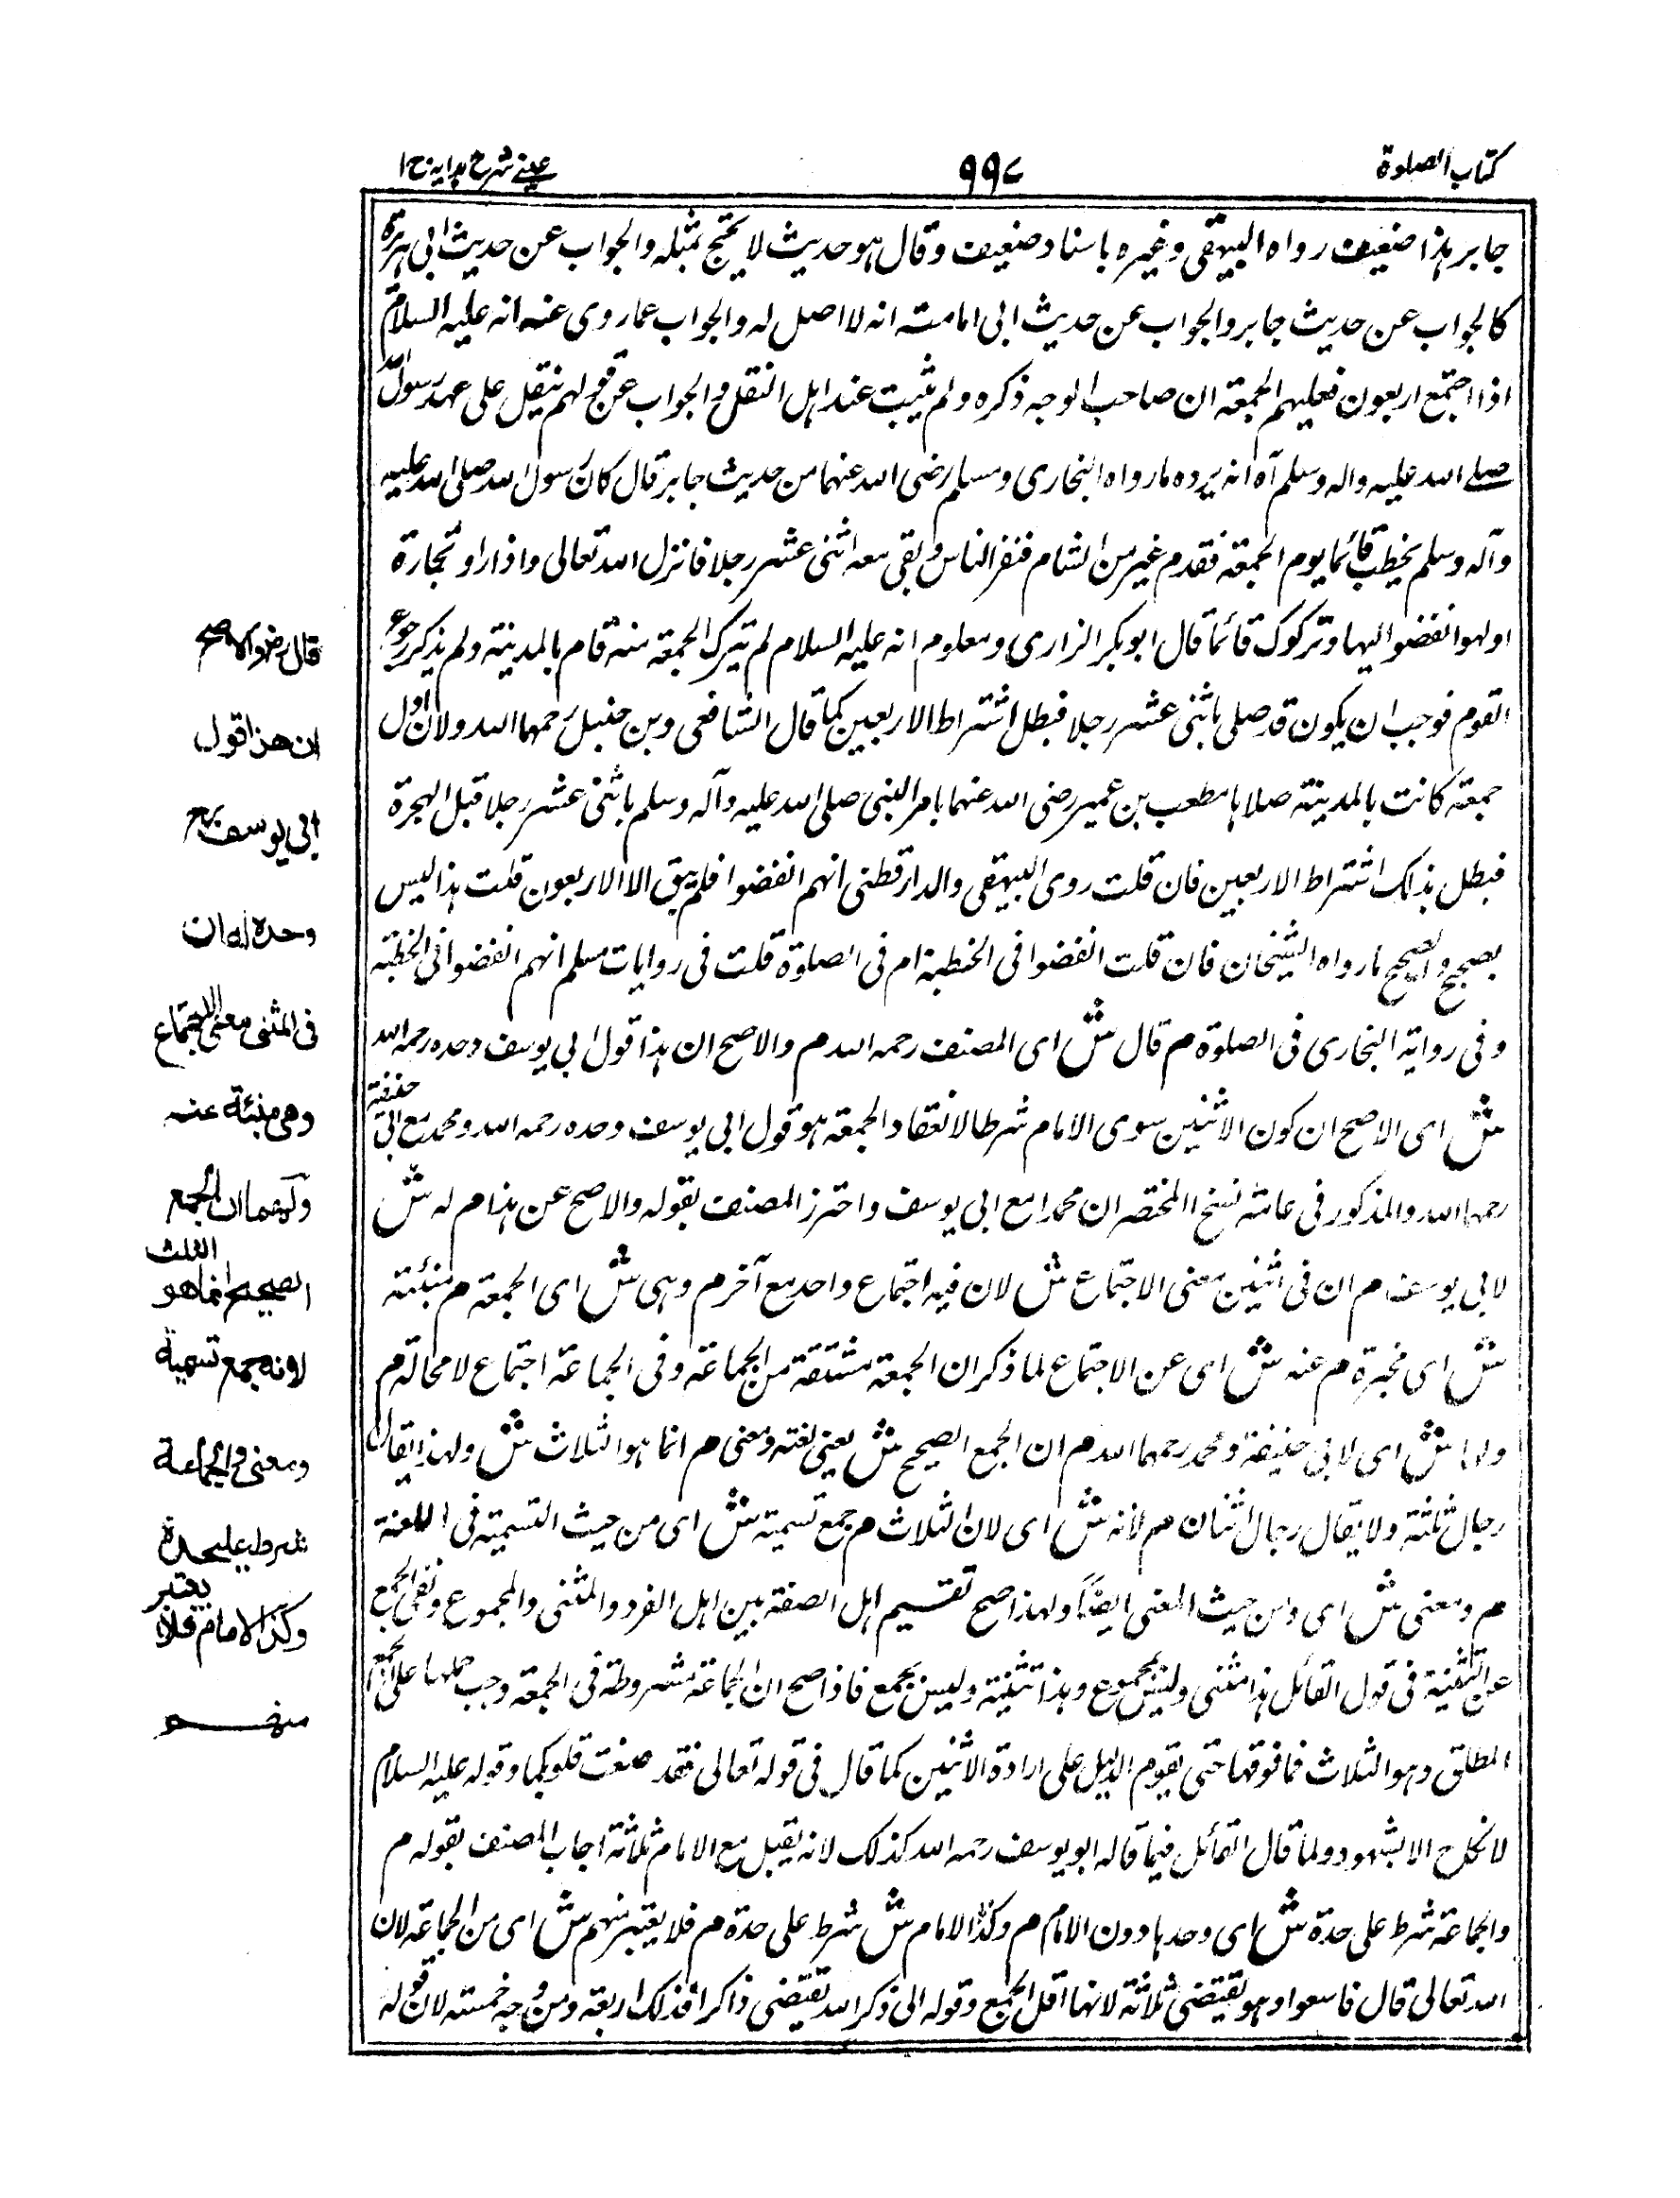 كتاب الصلوة
٩٩٧
عيني شرح هدايه ج ا
جابر هذا ضعيف رواه البيهقى وغيره باسناد ضعيف وقال هو حديث لا يحتج بمثله والجواب عن حديث ابى هريرة
كالجواب عن حديث جابر والجواب عن حديث ابى امامة انه لا اصل له والجواب عما روى عنه انه عليه السلام
اذا اجتمع اربعون فعليهم الجمعة ان صاحب الوجه ذكره ولم يثبت عند اهل النقل والجواب عن قولهم لم ينقل على عهد رسول الله
صلى الله عليه واله وسلم آه انه يرده مارواه البخارى ومسلم رضى الله عنهما من حديث جابر قال كان رسول الله صلى الله عليه
وآله وسلم يخطب قائما يوم الجمعة فقدم عير من الشام فنفر الناس وبقى معه اثنى عشر رجلا فانزل الله تعالى واذا راو تجارة
اولهوا نفضوا اليها وتركوك قائما قال ابوبكر الرازى ومعلوم انه عليه السلام لم يترك الجمعة منذ قام بالمدينة ولم يذكر رجوع
القوم فوجب ان يكون قد صلى باثنى عشر رجلا فبطل اشتراط الاربعين كما قال الشافعى وبن حنبل رحمهما الله ولان اول
جمعة كانت بالمدينة صلاها مصعب بن عمير رضى الله عنهما بامر النبى صلى الله عليه وآله وسلم باثنى عشر رجلا قبل الهجرة
فبطل بذلك اشتراط الاربعين فان قلت روى البيهقى والدارقطنى انهم انفضوا فلم يبق الا الاربعون قلت هذا ليس
بصحيح والصحيح مارواه الشيخان فان قلت انفضوا فى الخطبة ام فى الصلوة قلت فى روايات مسلم انهم انفضوا فى الخطبة
وفى رواية البخارى فى الصلوة م قال ش اى المصنف رحمه الله م والاصح ان هذا قول ابى يوسف وحده رحمه الله
ش اى الاصح ان كون الاثنين سوى الامام شرطا لانعقاد الجمعة هو قول ابى يوسف وحده رحمه الله ومحمد مع ابى حنيفة
رحمهما الله والمذكور فى عامة نسخ المختصر ان محمدا مع ابى يوسف واحترز المصنف بقوله والاصح عن هذا م له ش
لابى يوسف م ان فى اثنين معنى الاجتماع ش لان فيه اجتماع واحد مع آخر م وهى ش اى الجمعة م منبئة
ش اى مخبرة م عنه ش اى عن الاجتماع لما ذكر ان الجمعة مشتقة من الجماعة وفى الجماعة اجتماع لا محالة م
ولهما ش اى لابى حنيفة ومحمد رحمهما الله م ان الجمع الصحيح ش يعنى لغة ومعنى م انما هو الثلاث ش ولهذا يقال
رجال ثلثة ولا يقال رجال اثنان م لانه ش اى لان الثلاث م جمع تسمية ش اى من حيث التسمية فى اللغة
م ومعنى ش اى ومن حيث المعنى ايضاً ولهذا صح تقسيم اهل الصفة بين اهل الفرد والمثنى والمجموع ونفى الجمع
عن التثنية فى قول القائل هذا مثنى وليس بمجموع وهذا تثنية وليس بجمع فاذا صح ان الجماعة مشروطة فى الجمعة وجب حملها على الجمع
المطلق وهو الثلاث فما فوقها حتى يقوم الدليل على ارادة الاثنين كما قال فى قوله تعالى فقد صغت قلوبكما وقوله عليه السلام
لا نكاح الا بشهود ولما قال القائل فيما قاله ابو يوسف رحمه الله كذلك لانه يقبل مع الامام ثلاثة اجاب المصنف بقوله م
والجماعة شرط على حدة ش اى وحدها دون الامام م وكذا الامام ش شرط على حدة م فلا يعتبر منهم ش اى من الجماعة لان
الله تعالى قال فاسعوا وهو يقتضى ثلاثة لانها اقل الجمع وقوله الى ذكر الله يقتضى ذاكرا فذلك اربعة ومن وجه خمسة لان قوله
قال رضى والاصح
ان هذا قول
ابى يوسف رح
وحده له ان
فى المثنى معنى الاجتماع
وهى منبئة عنه
ولهما ان الجمع
الصحيح انما هو الثلث
لانه جمع تسمية
ومعنى والجماعة
شرط عليحدة
وكذا الامام فلا يعتبر
منهم